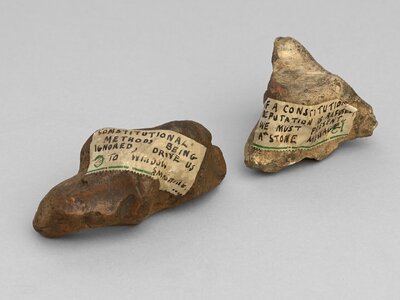 CONSTITUTIONAL
METHODS BEING
IGNORED, DRIVE US
TO WINDOW
SMASHING
F A CONSTITUTION
DEPUTATION IS REFUSE
WE MUST PRESENT
A STONE